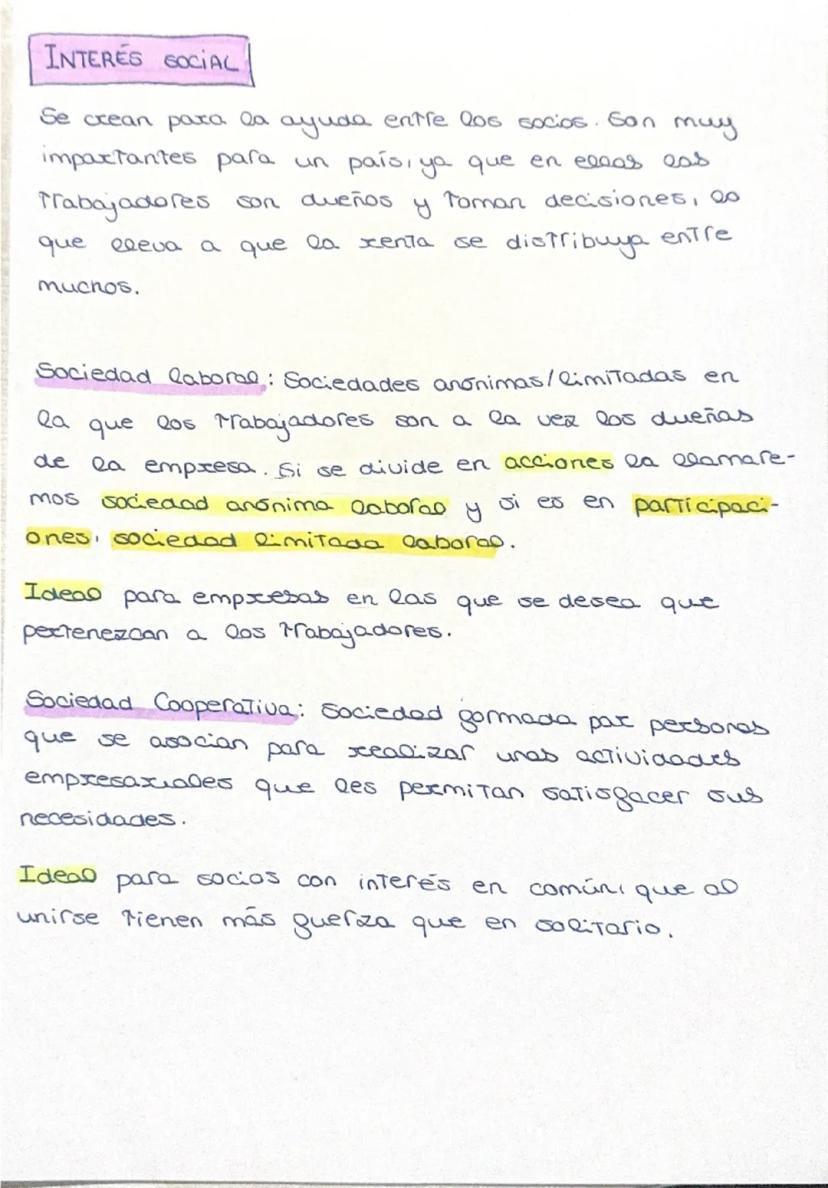 INTERÉS SOCIAL
Se crean para la ayuda entre los socios. Son muy
importantes para un país, ya que en ellas los
trabajadores son dueños y toman decisiones, lo
que lleva a que la renta se distribuya entre
muchos.
Sociedad laboral: Sociedades anónimas/limitadas en
la que los trabajadores son a la vez los dueños
de la empresa. Si se divide en acciones la llamare-
mos sociedad anónima laboral y si es en participaci-
ones, sociedad limitada laboral.
Ideal para empresas en las que se desea que
pertenezcan a los trabajadores.
Sociedad Cooperativa: Sociedad formada por personas
que se asocian para realizar unas actividades
empresariales que les permitan satisfacer sus
necesidades.
Ideal para socios con interés en común, que al
unirse tienen más fuerza que en solitario.